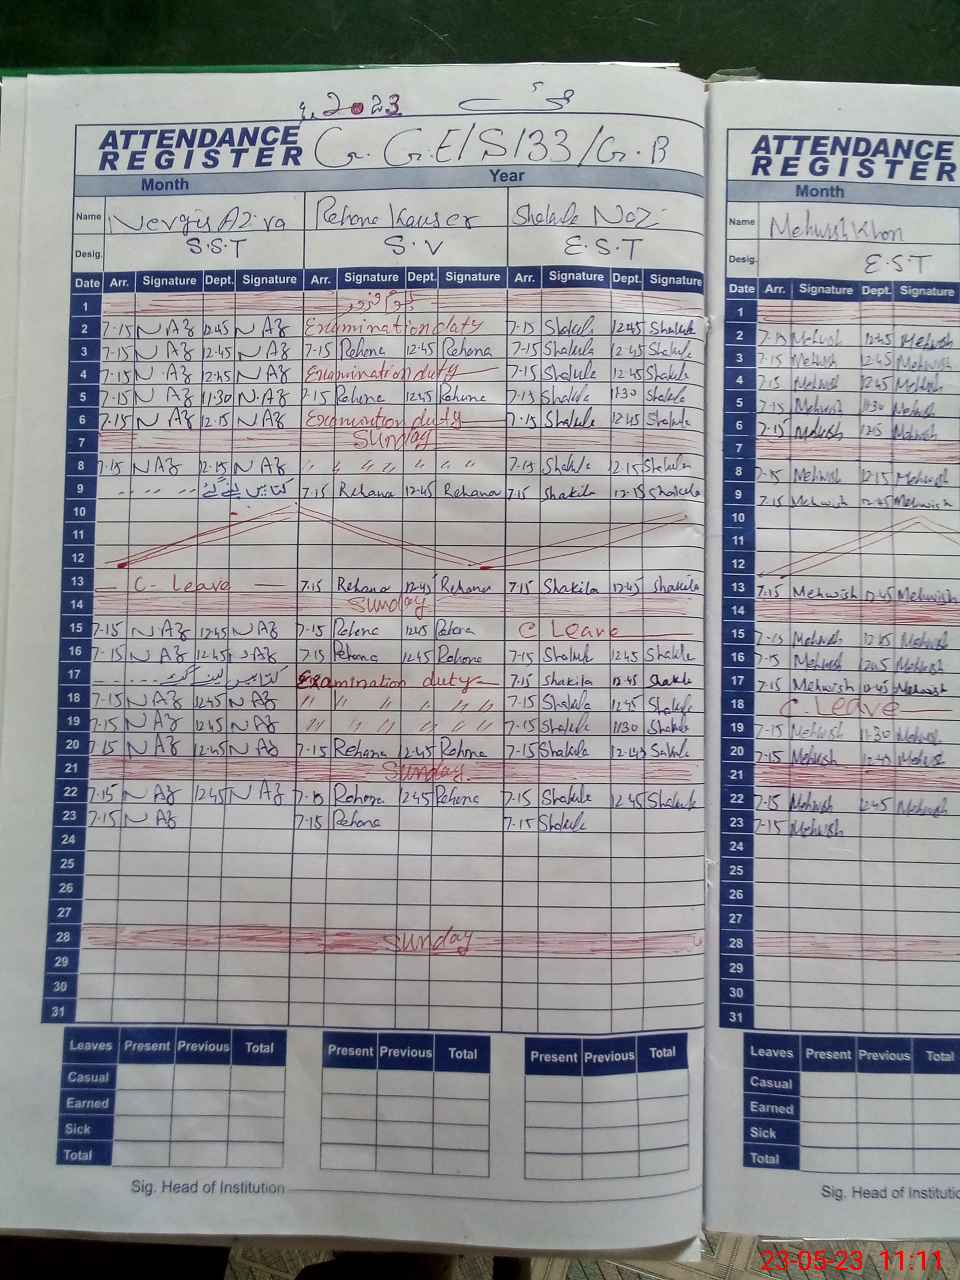 2023 مئی
ATTENDANCE REGISTER G.G.E/S/133/G.B
Month Year
Name Nergis Azra Rehana Kauser Shakila Naz
Desig. S.S.T S.V E.S.T
Date Arr. Signature Dept. Signature Arr. Signature Dept. Signature Arr. Signature Dept. Signature
1
2 7-15 N Az 12.45 N Az Examination duty 7-15 Shakila 12.45 Shakila
3 7-15 N Az 12.45 N Az 7-15 Rehana 12.45 Rehana 7-15 Shakila 12.45 Shakila
4 7-15 N Az 12.45 N Az Examination duty 7-15 Shakila 12.45 Shakila
5 7-15 N Az 11.30 N Az 7-15 Rehana 12.45 Rehana 7-15 Shakila 11.30 Shakila
6 7-15 N Az 12.15 N Az Examination duty 7-15 Shakila 12.45 Shakila
7 Sunday
8 7-15 N Az 12.15 N Az " " " " " " " 7-15 Shakila 12.15 Shakila
9 کتابیں لینے گئے 7-15 Rehana 12.45 Rehana 7-15 Shakila 12.15 Shakila
10
11
12
13 C. Leave 7-15 Rehana 12.45 Rehana 7-15 Shakila 12.45 Shakila
14 Sunday
15 7-15 N Az 12.45 N Az 7-15 Rehana 12.45 Rehana C Leave
16 7-15 N Az 12.45 N Az 7-15 Rehana 12.45 Rehana 7-15 Shakila 12.45 Shakila
17 کتابیں لینے Examination duty 7-15 Shakila 12.45 Shakila
18 7-15 N Az 12.45 N Az " " " " " " 7-15 Shakila 12.45 Shakila
19 7-15 N Az 12.45 N Az " " " " " " 7-15 Shakila 11.30 Shakila
20 7-15 N Az 12.45 N Az 7-15 Rehana 12.45 Rehana 7-15 Shakila 12.45 Shakila
21 Sunday
22 7-15 N Az 12.45 N Az 7-15 Rehana 12.45 Rehana 7-15 Shakila 12.45 Shakila
23 7-15 N Az 7-15 Rehana 7-15 Shakila
24
25
26
27
28 Sunday
29
30
31
Leaves Present Previous Total Present Previous Total Present Previous Total
Casual
Earned
Sick
Total
Sig. Head of Institution
ATTENDANCE REGISTER
Month
Name Mehwish Khan
Desig. E.S.T
Date Arr. Signature Dept. Signature
1
2 7-15 Mehwish 12.45 Mehwish
3 7-15 Mehwish 12.45 Mehwish
4 7-15 Mehwish 12.45 Mehwish
5 7-15 Mehwish 11.30 Mehwish
6 7-15 Mehwish 12.15 Mehwish
7
8 7-15 Mehwish 12.15 Mehwish
9 7-15 Mehwish 12.45 Mehwish
10
11
12
13 7-15 Mehwish 12.45 Mehwish
14
15 7-15 Mehwish 12.45 Mehwish
16 7-15 Mehwish 12.45 Mehwish
17 7-15 Mehwish 12.45 Mehwish
18 C. Leave
19 7-15 Mehwish 11.30 Mehwish
20 7-15 Mehwish 12.45 Mehwish
21
22 7-15 Mehwish 12.45 Mehwish
23 7-15 Mehwish
24
25
26
27
28
29
30
31
Leaves Present Previous Total
Casual
Earned
Sick
Total
Sig. Head of Institutio
23-05-23 11:11